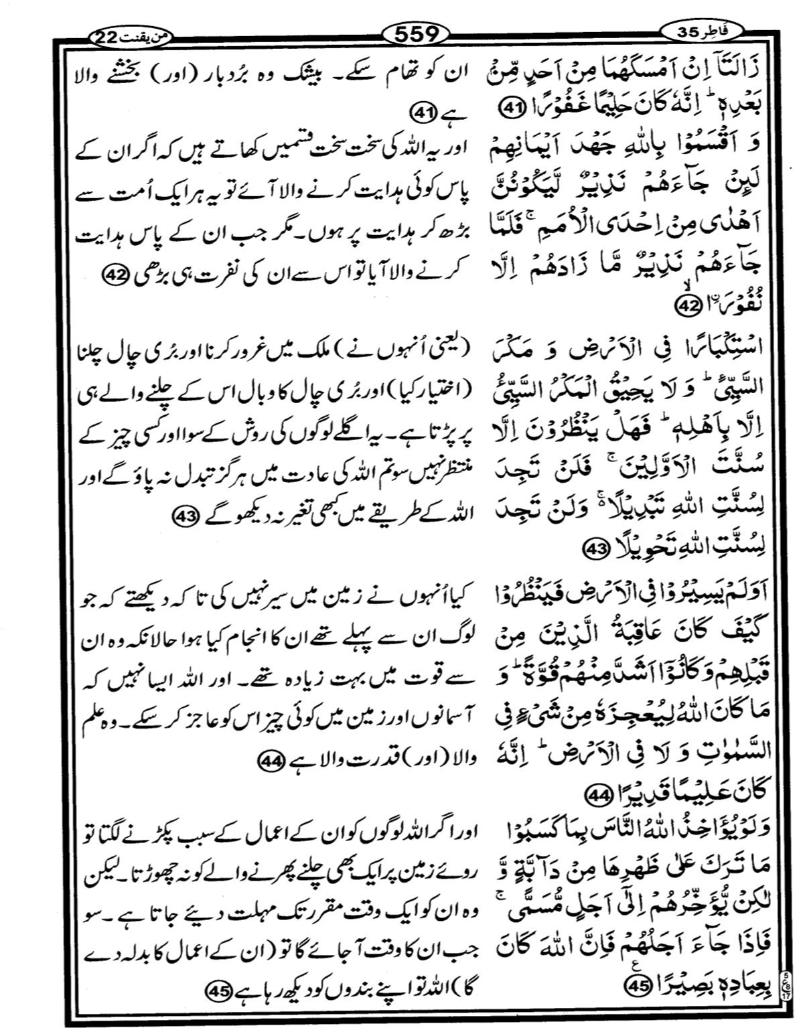 فَاطِر 35
559
من یقنت 22
زَالَتَاۤ اِنۡ اَمۡسَكَهُمَا مِنۡ اَحَدٍ مِّنۡۢ
بَعۡدِهٖ ؕ اِنَّهٗ كَانَ حَلِيۡمًا غَفُوۡرًا 41
وَ اَقۡسَمُوۡا بِاللّٰهِ جَهۡدَ اَيۡمَانِهِمۡ
لَئِنۡ جَآءَهُمۡ نَذِيۡرٌ لَّيَكُوۡنُنَّ
اَهۡدٰى مِنۡ اِحۡدَى الۡاُمَمِ ۚ فَلَمَّا
جَآءَهُمۡ نَذِيۡرٌ مَّا زَادَهُمۡ اِلَّا
نُفُوۡرَا ۙ 42
اسۡتِكۡبَارًا فِى الۡاَرۡضِ وَ مَكۡرَ
السَّيِّئِ ؕ وَ لَا يَحِيۡقُ الۡمَكۡرُ السَّيِّئُ
اِلَّا بِاَهۡلِهٖ ؕ فَهَلۡ يَنۡظُرُوۡنَ اِلَّا
سُنَّتَ الۡاَوَّلِيۡنَ ۚ فَلَنۡ تَجِدَ
لِسُنَّتِ اللّٰهِ تَبۡدِيۡلًا ۚ وَلَنۡ تَجِدَ
لِسُنَّتِ اللّٰهِ تَحۡوِيۡلًا 43
اَوَلَمۡ يَسِيۡرُوۡا فِى الۡاَرۡضِ فَيَنۡظُرُوۡا
كَيۡفَ كَانَ عَاقِبَةُ الَّذِيۡنَ مِنۡ
قَبۡلِهِمۡ وَكَانُوۡۤا اَشَدَّ مِنۡهُمۡ قُوَّةً ؕ وَ
مَا كَانَ اللّٰهُ لِيُعۡجِزَهٗ مِنۡ شَىۡءٍ فِى
السَّمٰوٰتِ وَ لَا فِى الۡاَرۡضِ ؕ اِنَّهٗ
كَانَ عَلِيۡمًا قَدِيۡرًا 44
وَلَوۡ يُؤَاخِذُ اللّٰهُ النَّاسَ بِمَا كَسَبُوۡا
مَا تَرَكَ عَلٰى ظَهۡرِهَا مِنۡ دَآبَّةٍ وَّ
لٰـكِنۡ يُّؤَخِّرُهُمۡ اِلٰٓى اَجَلٍ مُّسَمًّى ۚ
فَاِذَا جَآءَ اَجَلُهُمۡ فَاِنَّ اللّٰهَ كَانَ
بِعِبَادِهٖ بَصِيۡرًا 45 ع
ان کو تھام سکے۔ بیشک وہ بُردبار (اور) بخشنے والا
ہے 41
اور یہ اللہ کی سخت سخت قسمیں کھاتے ہیں کہ اگر ان کے
پاس کوئی ہدایت کرنے والا آئے تو یہ ہر ایک اُمت سے
بڑھ کر ہدایت پر ہوں۔ مگر جب ان کے پاس ہدایت
کرنے والا آیا تو اس سے ان کی نفرت ہی بڑھی 42
(یعنی اُنہوں نے) ملک میں غرور کرنا اور بُری چال چلنا
(اختیار کیا) اور بُری چال کا وبال اس کے چلنے والے ہی
پر پڑتا ہے۔ یہ اگلے لوگوں کی روش کے سوا اور کسی چیز کے
منتظر نہیں سو تم اللہ کی عادت میں ہرگز تبدل نہ پاؤ گے اور
اللہ کے طریقے میں کبھی تغیر نہ دیکھو گے 43
کیا اُنہوں نے زمین میں سیر نہیں کی تا کہ دیکھتے کہ جو
لوگ ان سے پہلے تھے ان کا انجام کیا ہوا حالانکہ وہ ان
سے قوت میں بہت زیادہ تھے۔ اور اللہ ایسا نہیں کہ
آسمانوں اور زمین میں کوئی چیز اس کو عاجز کر سکے۔ وہ علم
والا (اور) قدرت والا ہے 44
اور اگر اللہ لوگوں کو ان کے اعمال کے سبب پکڑنے لگتا تو
روئے زمین پر ایک بھی چلنے پھرنے والے کو نہ چھوڑتا۔ لیکن
وہ ان کو ایک وقت مقرر تک مہلت دیئے جاتا ہے۔ سو
جب ان کا وقت آ جائے گا تو (ان کے اعمال کا بدلہ دے
گا) اللہ تو اپنے بندوں کو دیکھ رہا ہے 45